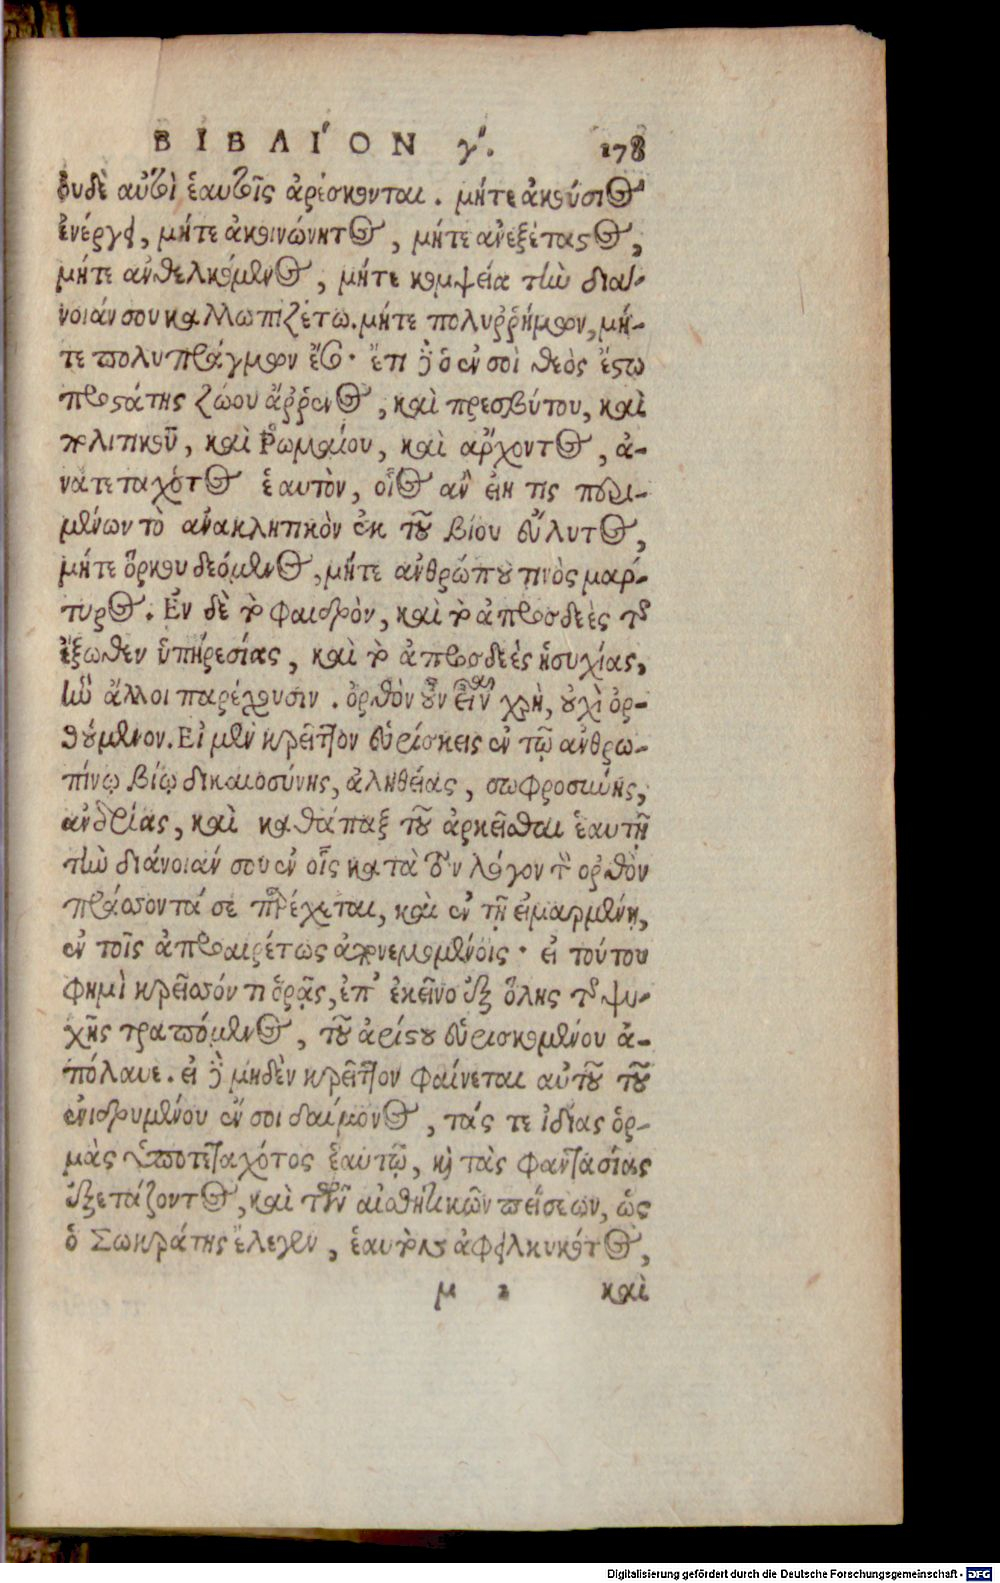 ΒΙΒΛΙ´ΟΝ γ´. 178
ουδὲ αὐτοὶ ἑαυτοῖς ἀρέσκονται. μήτε ἀκούσιος
ἐνέργει, μήτε ἀκοινώνητος, μήτε ἀνεξέταστος,
μήτε ἀνθελκόμενος, μήτε κομψεία τὴν διαί-
νοιάν σου καλλωπιζέτω. μήτε πολυῤῥήμων, μή-
τε πολυπράγμων ἔσο· ἔτι δὲ ὁ ἐν σοὶ θεὸς ἔστω
προστάτης ζώου ἄῤῥενος, καὶ πρεσβύτου, καὶ
πολιτικοῦ, καὶ Ῥωμαίου, καὶ ἄρχοντος, ἀ-
νατεταχότος ἑαυτὸν, οἷος ἂν εἴη τις περι-
μένων τὸ ἀνακλητικὸν ἐκ τοῦ βίου εὔλυτος,
μήτε ὅρκου δεόμενος, μήτε ἀνθρώπου τινὸς μάρ-
τυρος. Ἐν δὲ τὸ φαιδρὸν, καὶ τὸ ἀπροσδεὲς τῆς
ἔξωθεν ὑπηρεσίας, καὶ τὸ ἀπροσδεὲς ἡσυχίας,
ἣν ἄλλοι παρέχουσιν. ὀρθὸν οὖν εἶναι χρὴ, οὐχὶ ὀρ-
θούμενον. Εἰ μὲν κρεῖττον εὑρίσκεις ἐν τῷ ἀνθρω-
πίνῳ βίῳ δικαιοσύνης, ἀληθείας, σωφροσύνης,
ἀνδρίας, καὶ καθάπαξ τοῦ ἀρκεῖσθαι ἑαυτῇ
τὴν διάνοιάν σου ἐν οἷς κατὰ τὸν λόγον τὸν ὀρθὸν
πράσσοντά σε παρέχεται, καὶ ἐν τῇ εἱμαρμένῃ,
ἐν τοῖς ἀπροαιρέτως ἀπονεμομένοις· εἰ τούτου
φημὶ κρεῖσσόν τι ὁρᾷς, ἐπ' ἐκεῖνο ἐξ ὅλης τῆς ψυ-
χῆς τραπόμενος, τοῦ ἀρίστου εὑρισκομένου ἀ-
πόλαυε. εἰ δὲ μηδὲν κρεῖττον φαίνεται αὐτοῦ τοῦ
ἐνιδρυμένου ἐν σοι δαίμονος, τάς τε ἰδίας ὁρ-
μὰς ὑποτεταχότος ἑαυτῷ, καὶ τὰς φαντασίας
ἐξετάζοντος, καὶ τῶν αἰσθητικῶν πείσεων, ὡς
ὁ Σωκράτης ἔλεγεν, ἑαυτὸν ἀφελκυκότος,
μ 2 καὶ
Digitalisierung gefördert durch die Deutsche Forschungsgemeinschaft - DFG